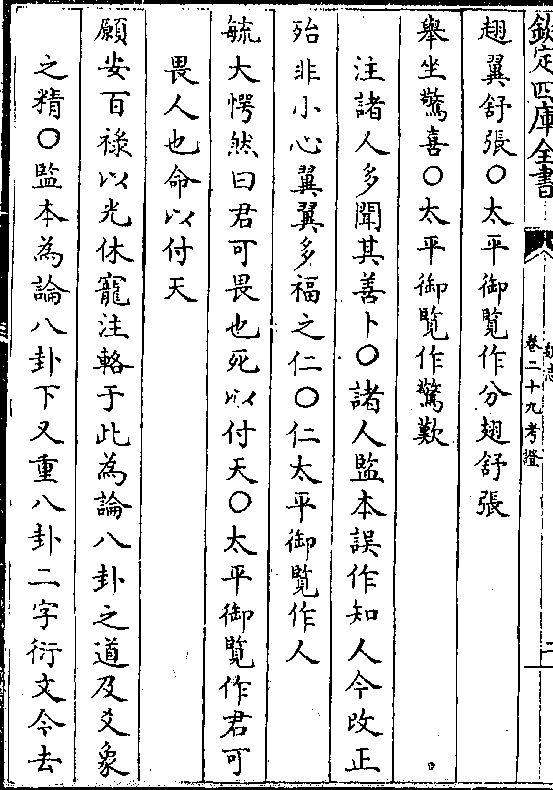 欽定四庫全書
魏志
卷二十九考證
二
翅翼舒張○太平御覽作分翅舒張
舉坐驚喜○太平御覽作驚歎
注諸人多聞其善卜○諸人監本誤作知人今改正
殆非小心翼翼多福之仁○仁太平御覽作人
毓大愕然曰君可畏也死以付天○太平御覽作君可
畏人也命以付天
願安百祿以光休寵注輅于此為論八卦之道及爻象
之精○監本為論八卦下又重八卦二字衍文今去